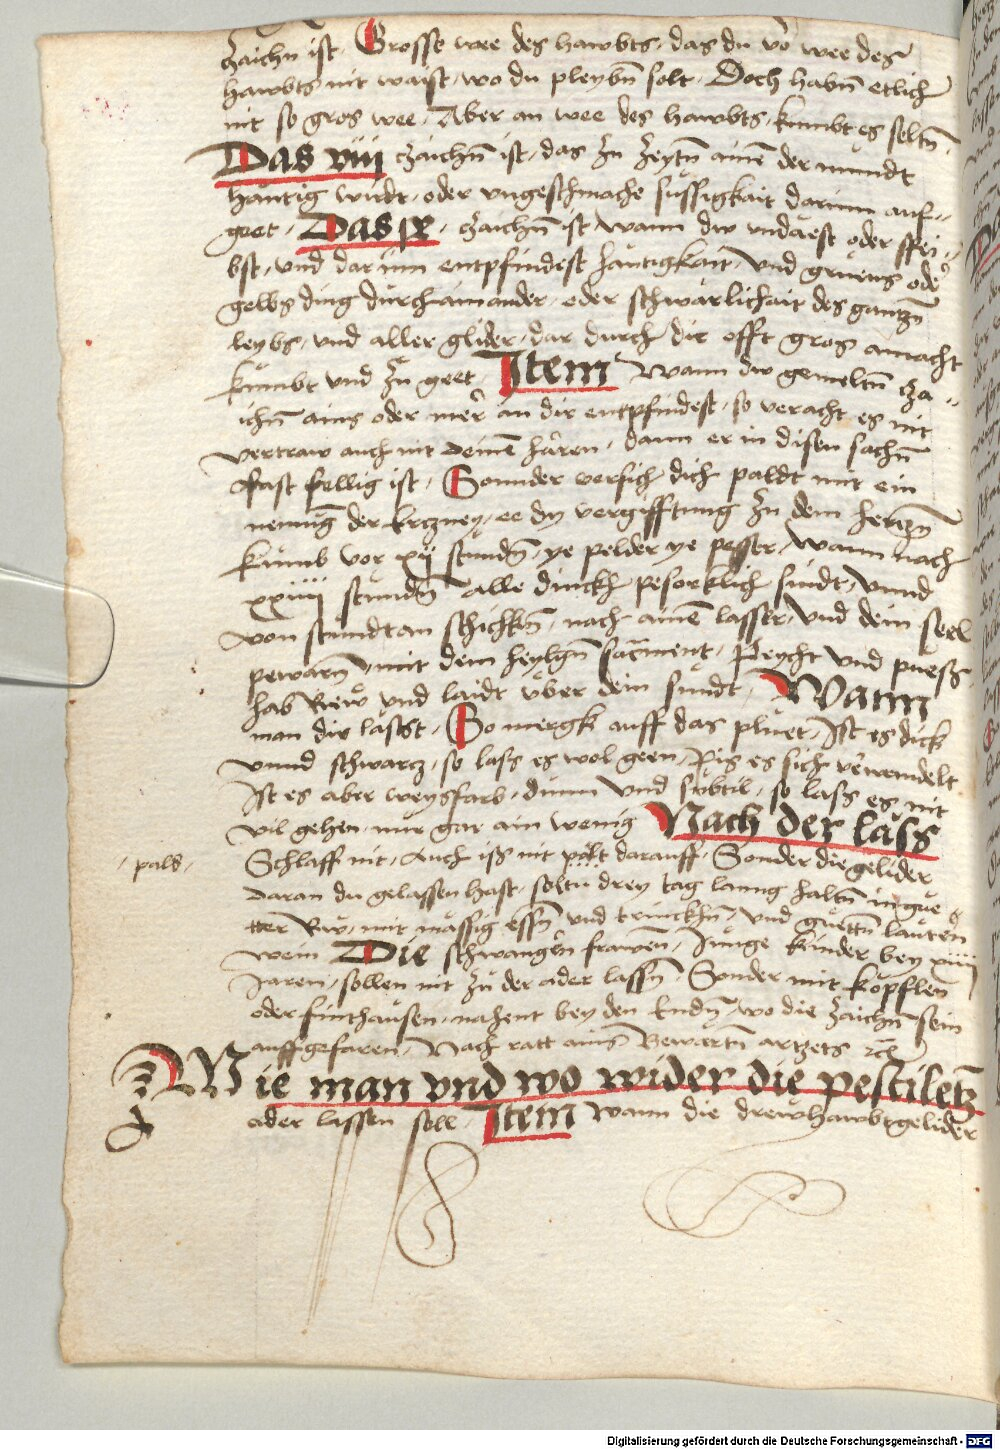 zaichn ist. Grosse wee des hawbts, das du vor wee des
hawbts nit waist, wo du pleybn̄ solt. Doch habn̄ etlich
nit so gros wee. Aber an wee des hawbts kumbt es seltn̄.
Das viij zaichn̄ ist, das zu zeytn̄ ainē der mundt
hantig wirdt, oder ungeschmache süssigkait darinn auf-
geet. Das ix. zaichn̄ ist wann dw undaest oder spei-
bst, und dar inn entpfindest hantigkait, und gruens oder
gelbs ding durch ainander, oder schwarlichait des gantzn̄
leybs, und aller glider, dar durch dir offt gros amacht
kumbt und zu geet. Item Wann dw gemeltn̄ za-
ichn̄ ains oder mer an dir entpfindest, so veracht es nit
vertraw auch nit deinē haren, dann er in disen sachn̄
fast fellig ist. Sonnder versich dich paldt mit ein
nemung der Ertzney, ee dy vergifftung zu dem hertzn̄
kumb vor xij stundn̄, ye pelder ye pesser, Wann nach
xxiiij stundn̄ alle dinckh sorklich sindt, unnd
von stundt an schickhn̄, nach ainē lasser, und dein seel
pewarn̄, mit dem heylgn̄ sacrament, Peycht und puess.
hab Rew und laidt über dein sundt. Wann
man dir lässt. So mergk auff das pluet, Ist es dick
unnd schwarcz, so lass es wol geen, Pis es sich verwendelt
Ist es aber weysfarb, dünn und subtil, so lass es nit
vil gehen, nur gar ain wenig Nach der läss
pald.
Schlaff nit, Auch iss nit palt darauff. Sonder die gelider
daran du gelassen hast, soltu drey tag lanng haltn̄ in gue-
tter Rw, mit mässig essn̄ und trinckhn̄, und guettn̄ lautern
wein Die schwangern frawen, Junge kinder bey xiiij
Jaren, sollen nit zu der ader lassn̄. Sonder mit köpflen
oder finthausen, nahent bey den Endn̄, wo die zaichn̄ sein
auffgefaren, Nach ratt ains Bewartn̄ artzets etc
Wie man und wo wider die pestiletz
ader lassen soll. Item Wann die drew hawbtgelider
Digitalisierung gefördert durch die Deutsche Forschungsgemeinschaft - DFG